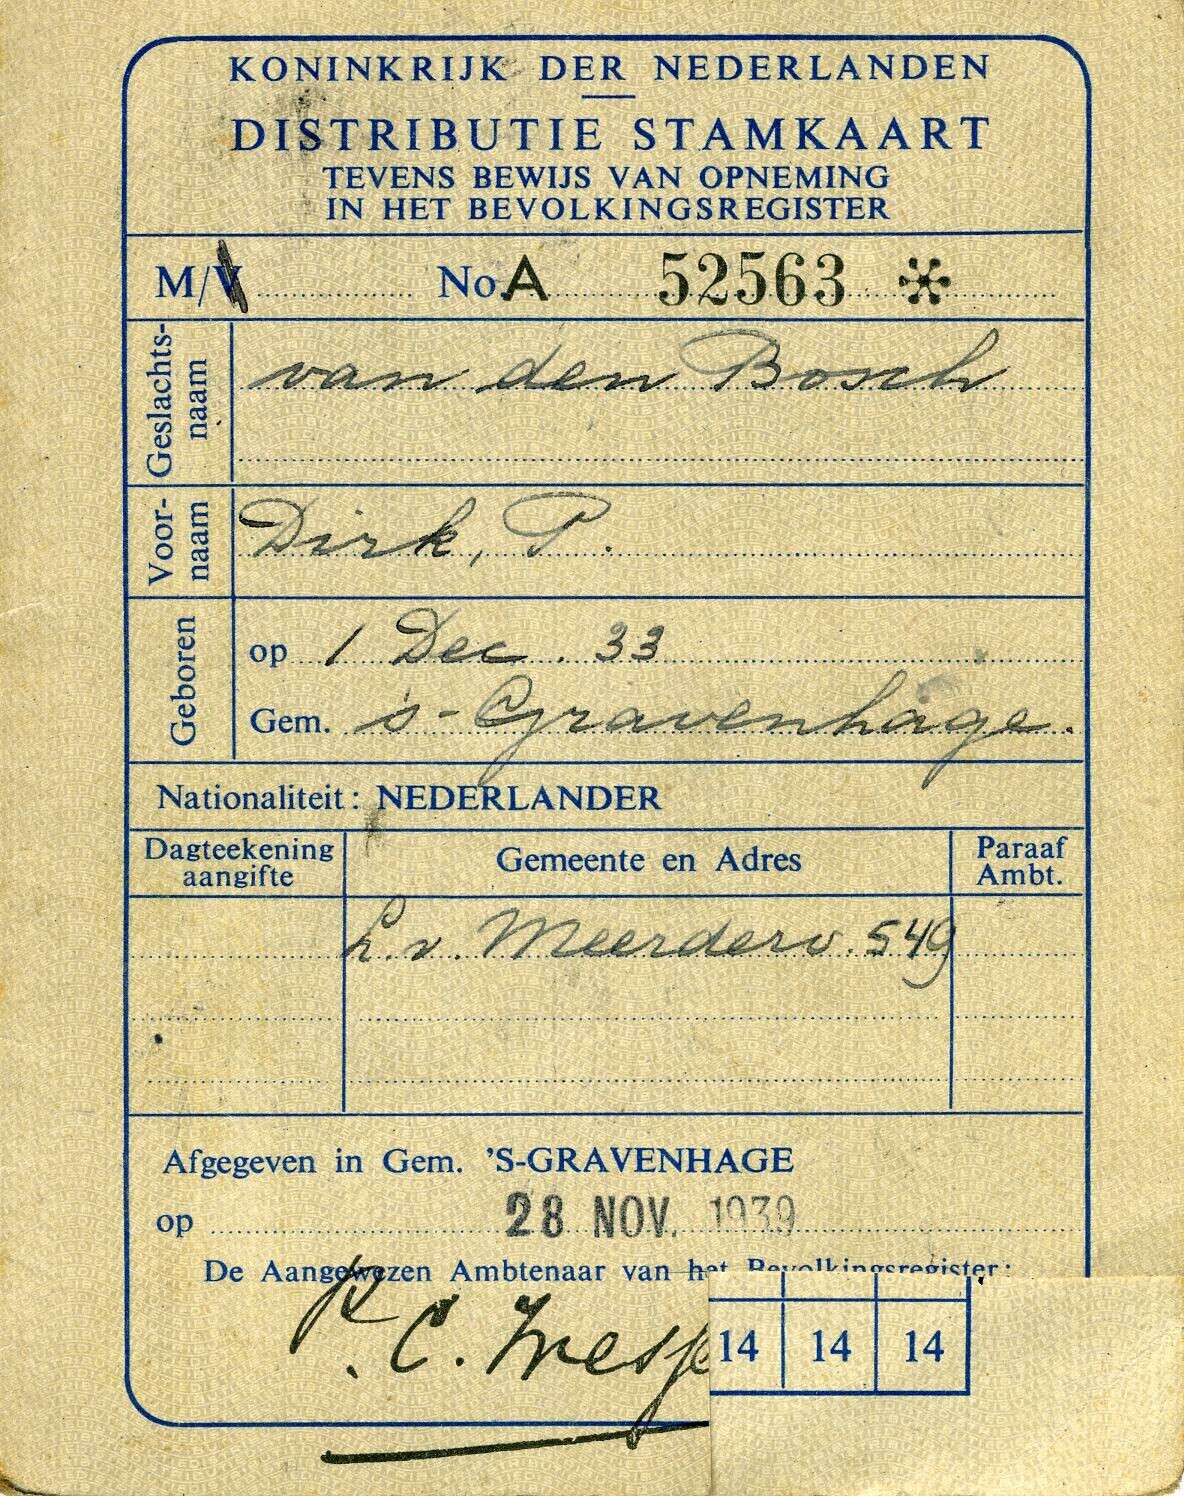 KONINKRIJK DER NEDERLANDEN
DISTRIBUTIE STAMKAART
TEVENS BEWIJS VAN OPNEMING
IN HET BEVOLKINGSREGISTER
M/V No. A 52563 *
Geslachts-
naam
van den Bosch
Voor-
naam
Dirk, P.
Geboren
op 1 Dec. 33
Gem. 's-Gravenhage.
Nationaliteit: NEDERLANDER
Dagteekening
aangifte
Gemeente en Adres
Paraaf
Ambt.
L.v. Meerderv. 549
Afgegeven in Gem. 'S-GRAVENHAGE
op 28 NOV. 1939
De Aangewezen Ambtenaar van het Bevolkingsregister:
14 14 14